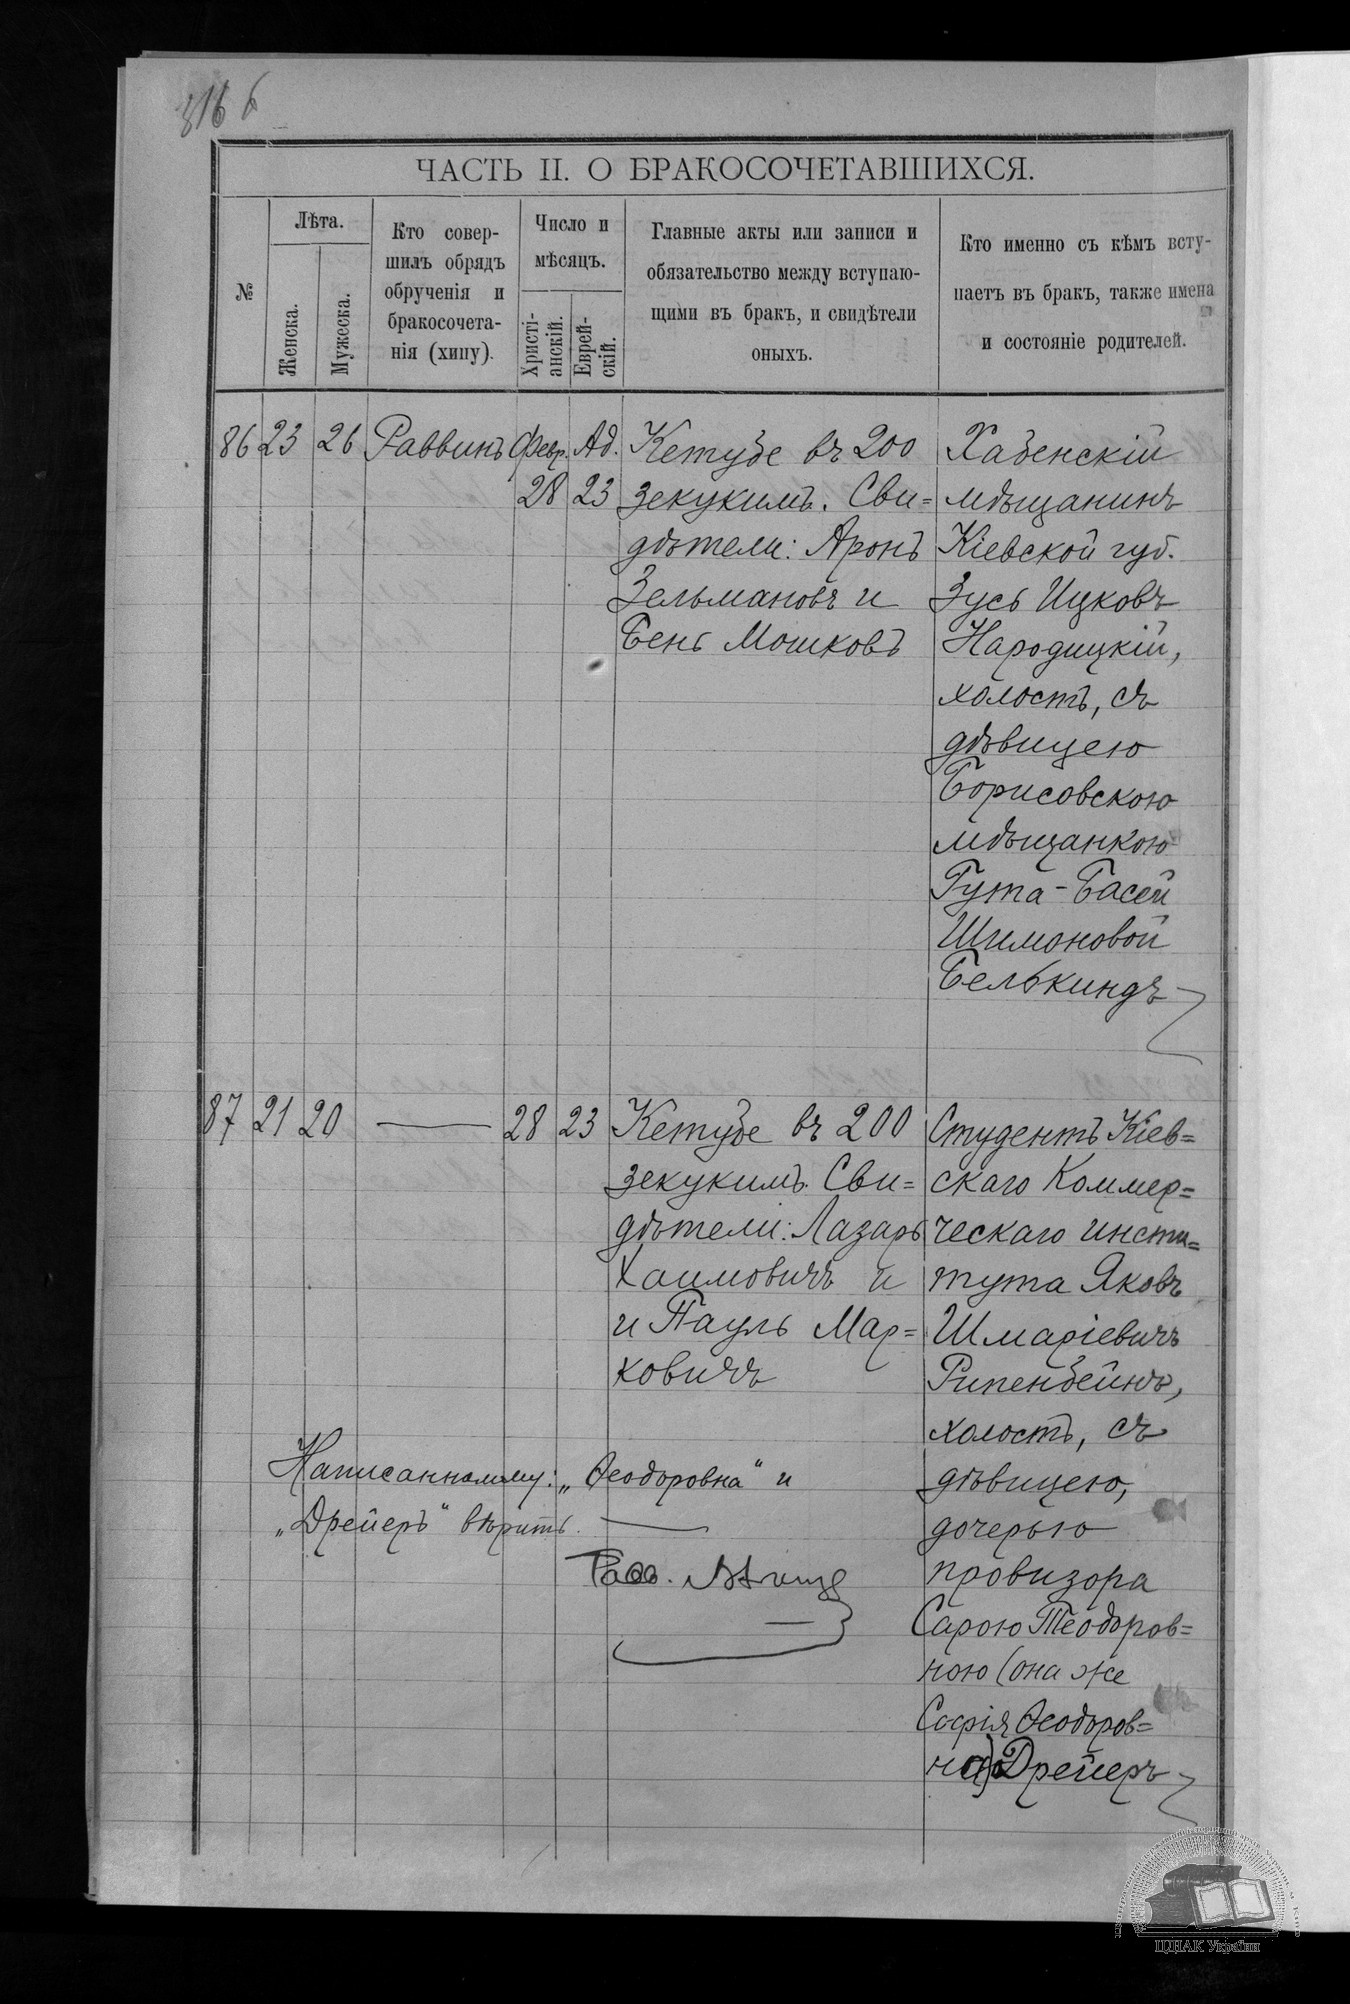 316 б
ЧАСТЬ II. О БРАКОСОЧЕТАВШИХСЯ.
№
Лѣта.
Женска.
Мужеска.
Кто совер-
шилъ обрядъ
обрученія и
бракосочета-
нія (хипу).
Число и
мѣсяцъ.
Христі-
анскій.
Еврей-
скій.
Главные акты или записи и
обязательство между вступаю-
щими въ бракъ, и свидѣтели
оныхъ.
Кто именно съ кѣмъ всту-
паетъ въ бракъ, также имена
и состояніе родителей.
86 23 26 Раввинъ Февр. Ад.
28 23
Кетубе въ 200
зекукимъ. Сви=
дѣтели: Аронъ
Зельмановъ и
Бень Мошковъ
Хабенскій
мѣщанинъ
Кіевской губ.
Зусь Ицковъ
Народицкій,
холостъ, съ
дѣвицею
Борисовскою
мѣщанкою
Гута-Басей
Шимоновой
Белькиндъ
87 21 20 — 28 23
Кетубе въ 200
зекукимъ. Сви=
дѣтели: Лазарь
Хаимовичъ и
и Пауль Мар=
ковичъ
Студентъ Кіев=
скаго Коммер=
ческаго инсти=
тута Яковъ
Шмаріевичъ
Рипенбейнъ,
холостъ, съ
дѣвицею,
дочерью
провизора
Сарою Теодоров=
ною (она же
Софія Ѳеодоров=
на) Дрейеръ
Написанному: „Ѳеодоровна" и
„Дрейеръ" вѣрить. —
Равв.
ЦДІАК України